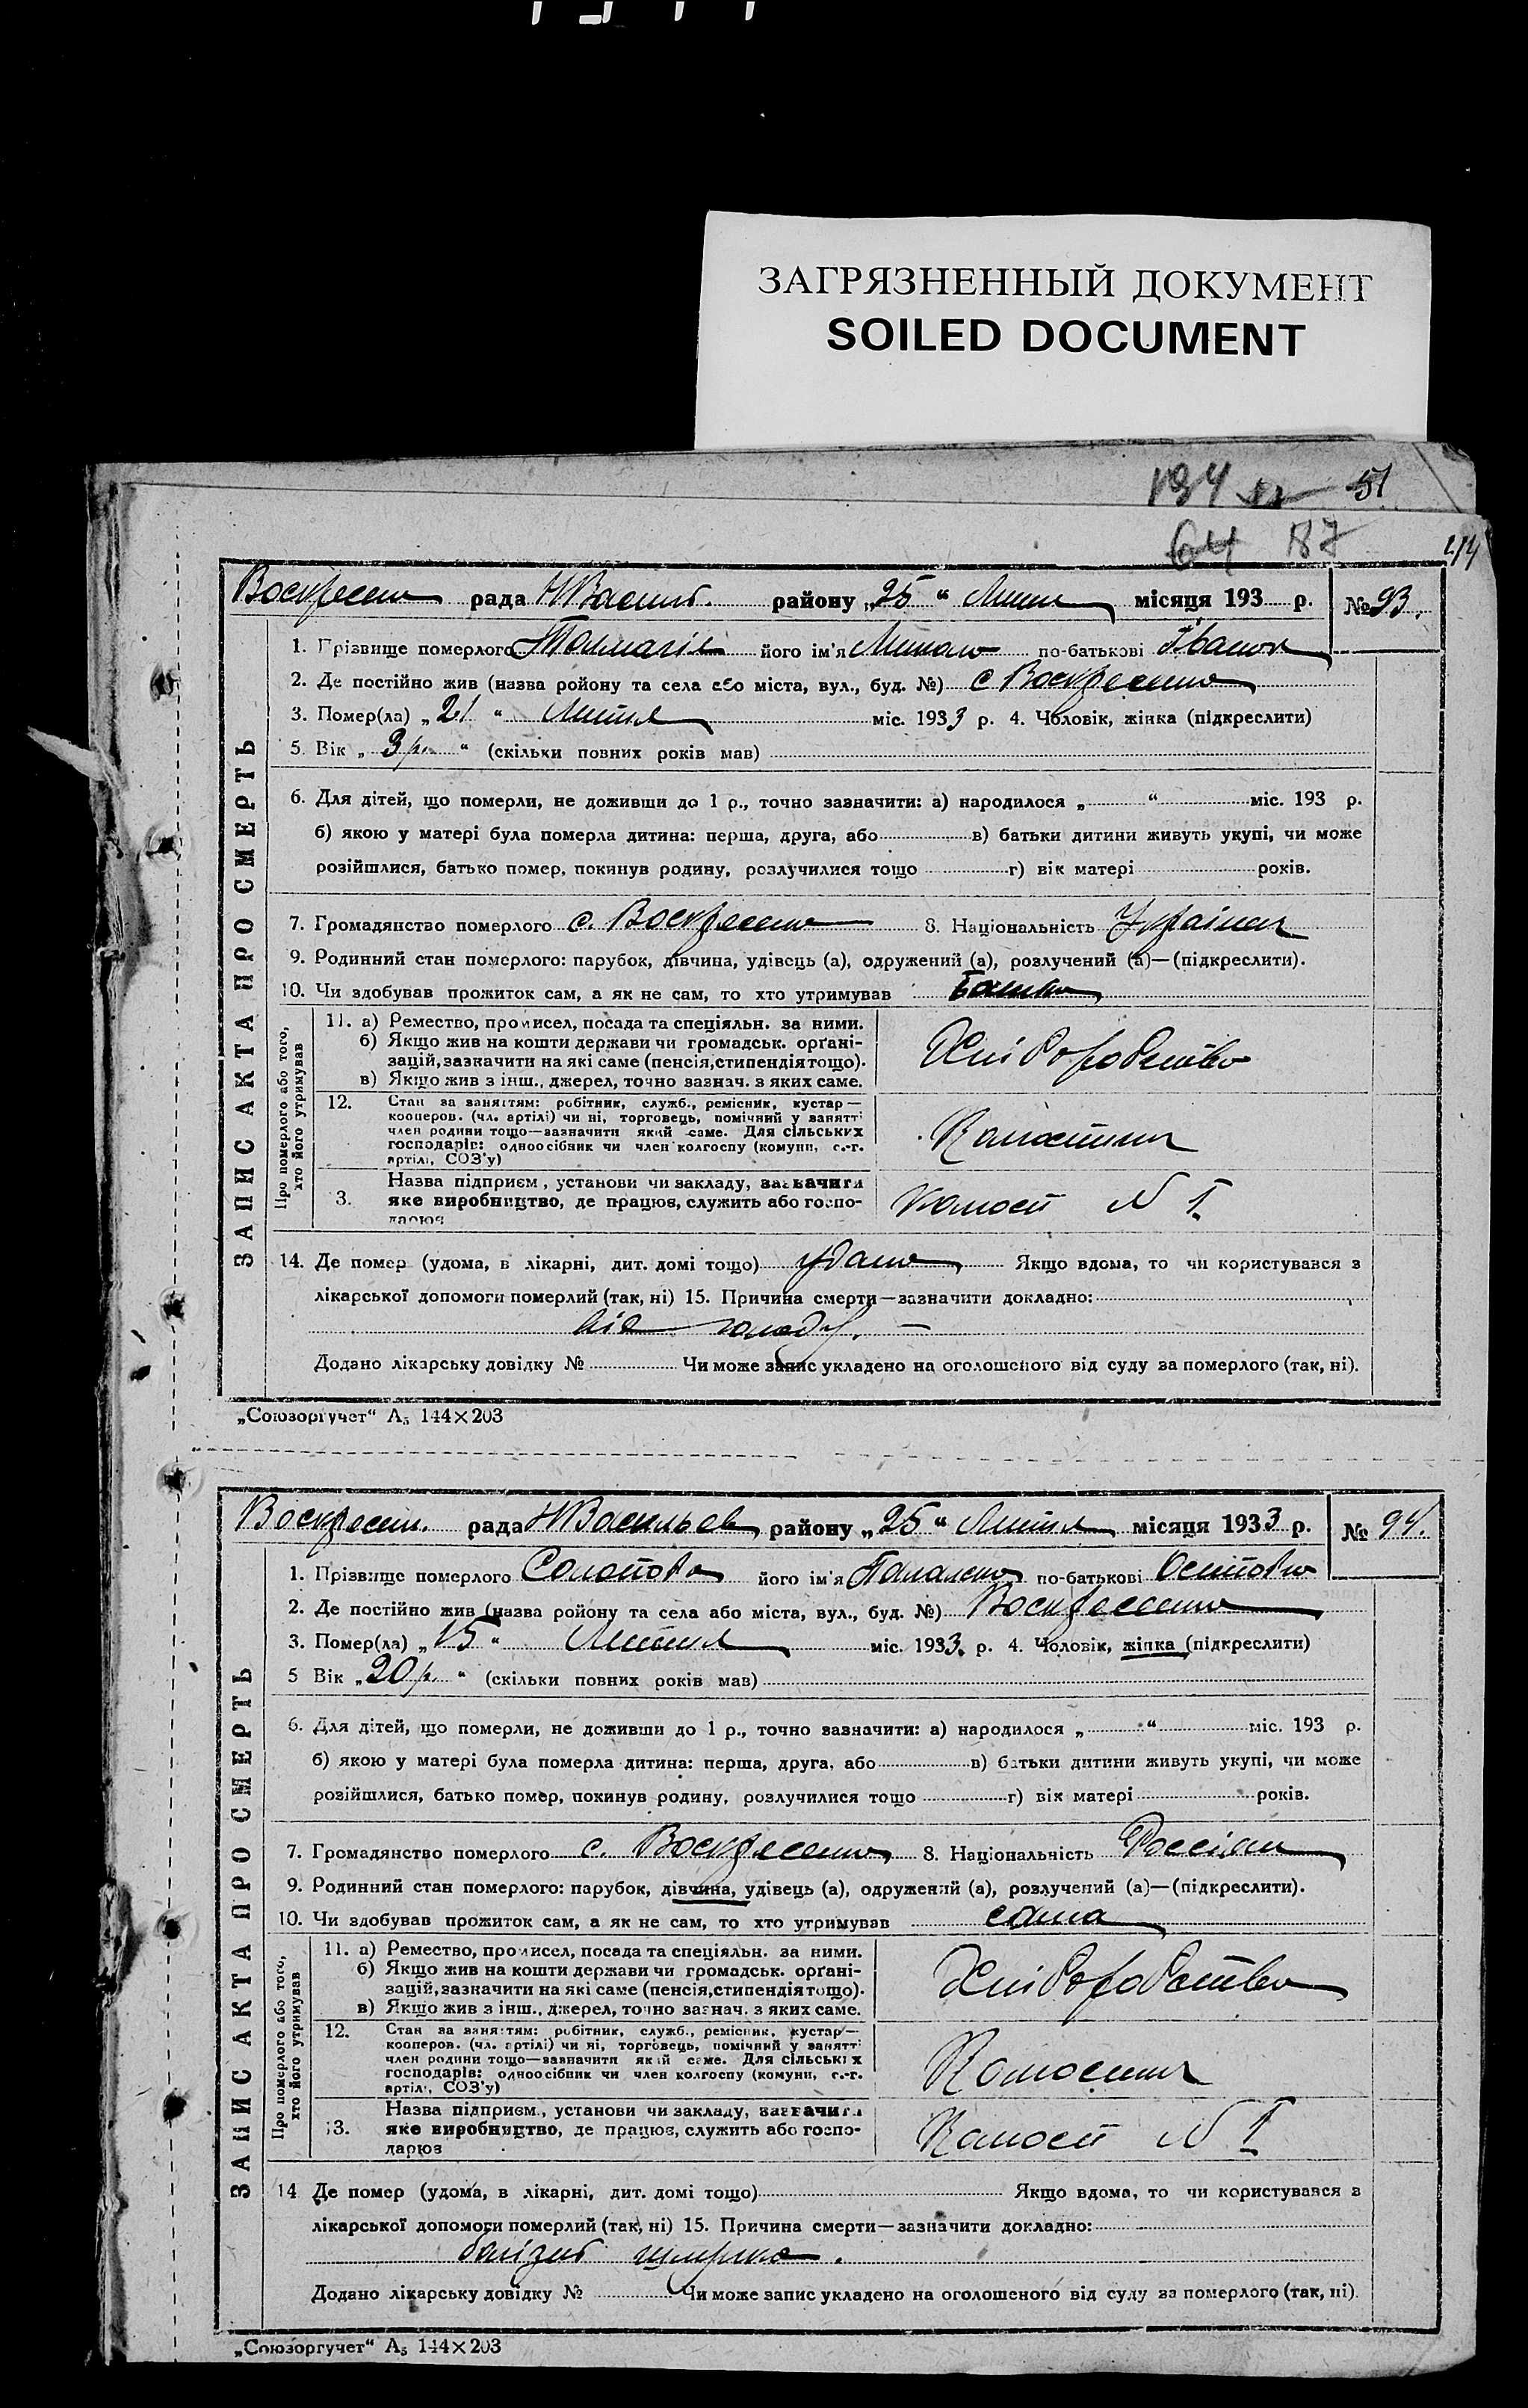 ЗАГРЯЗНЕННЫЙ ДОКУМЕНТ
SOILED DOCUMENT
194 51
64 187
Воскресен рада НВасил. району „25“ Липня місяця 193 р. № 93.
1. Прізвище померлого його ім'я по-батькові Іванов
2. Де постійно жив (назва ройону та села або міста, вул., буд. №) с Воскресенка
3. Помер(ла) „21“ Липня міс. 1933 р. 4. Чоловік, жінка (підкреслити)
5. Вік „3 р.“ (скільки повних років мав)
6. Для дітей, що померли, не доживши до 1 р., точно зазначити: а) народилося „ “ міс. 193 р.
б) якою у матері була померла дитина: перша, друга, або в) батьки дитини живуть укупі, чи може
розійшлися, батько помер, покинув родину, розлучилися тощо г) вік матері років.
7. Громадянство померлого с. Воскресенка 8. Національність Україн
9. Родинний стан померлого: парубок, дівчина, удівець (а), одружений (а), розлучений (а)—(підкреслити).
10. Чи здобував прожиток сам, а як не сам, то хто утримував батько
ЗАПИС АКТА ПРО СМЕРТЬ
Про померлого або того, хто його утримував
11. а) Ремество, промисел, посада та спеціяльн. за ними.
б) Якщо жив на кошти держави чи громадськ. орґані-
зацій, зазначити на які саме (пенсія, стипендія тощо).
в) Якщо жив з інш., джерел, точно зазнач. з яких саме.
Хліборобство
12. Стан за заняттям: робітник, служб., ремісник, кустар—
кооперов. (чл. артілі) чи ні, торговець, помічний у занятті
член родини тощо—зазначити який саме. Для сільських
господарів: одноосібник чи член колгоспу (комуни, с.-г.
артілі, СОЗ'у)
Колгоспник
3. Назва підприєм., установи чи закладу, зазначити
яке виробництво, де працює, служить або госпо-
дарює
Колгосп N 1
14. Де помер (удома, в лікарні, дит. домі тощо) удома Якщо вдома, то чи користувався з
лікарської допомоги померлий (так, ні) 15. Причина смерти—зазначити докладно:
від голоду. —
Додано лікарську довідку № Чи може запис укладено на оголошеного від суду за померлого (так, ні).
„Союзоргучет“ А5 144×203
Воскресен. рада НВасильев району „25“ Липня місяця 1933 р. № 94.
1. Прізвище померлого його ім'я по-батькові
2. Де постійно жив (назва ройону та села або міста, вул., буд. №) Воскресенка
3. Помер(ла) „15“ Липня міс. 1933 р. 4. Чоловік, жінка (підкреслити)
5 Вік „20 р.“ (скільки повних років мав)
6. Для дітей, що померли, не доживши до 1 р., точно зазначити: а) народилося „ “ міс. 193 р.
б) якою у матері була померла дитина: перша, друга, або в) батьки дитини живуть укупі, чи може
розійшлися, батько помер, покинув родину, розлучилися тощо г) вік матері років.
7. Громадянство померлого с. Воскресенка 8. Національність Россіян
9. Родинний стан померлого: парубок, дівчина, удівець (а), одружений (а), розлучений (а)—(підкреслити).
10. Чи здобував прожиток сам, а як не сам, то хто утримував сама
ЗАПИС АКТА ПРО СМЕРТЬ
Про померлого або того, хто його утримував
11. а) Ремество, промисел, посада та спеціяльн. за ними.
б) Якщо жив на кошти держави чи громадськ. орґані-
зацій, зазначити на які саме (пенсія, стипендія тощо).
в) Якщо жив з інш., джерел, точно зазнач. з яких саме.
Хліборобство
12. Стан за заняттям: робітник, служб., ремісник, кустар—
кооперов. (чл. артілі) чи ні, торговець, помічний у занятті
член родини тощо—зазначити який саме. Для сільських
господарів: одноосібник чи член колгоспу (комуни, с.-г.
артілі, СОЗ'у)
Колгоспник
13. Назва підприєм., установи чи закладу, зазначити
яке виробництво, де працює, служить або госпо-
дарює
Колгосп N 1
14 Де помер (удома, в лікарні, дит. домі тощо) Якщо вдома, то чи користувався з
лікарської допомоги померлий (так, ні) 15. Причина смерти—зазначити докладно:
Додано лікарську довідку № Чи може запис укладено на оголошеного від суду за померлого (так, ні).
„Союзоргучет“ А5 144×203